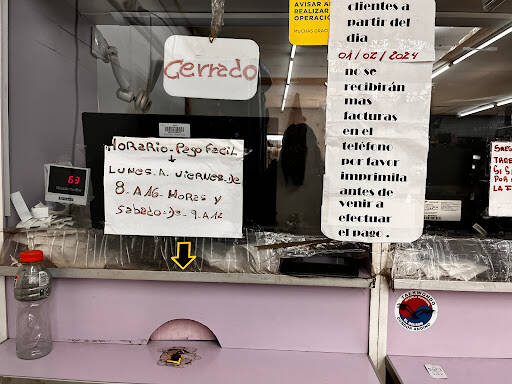 AVISAR A
REALIZAR
OPERACIÓ
MUCHAS GRAC
Cerrado
clientes a
partir del
dia
01/02/2024
no se
recibirán
mas
facturas
en el
teléfono
por favor
imprimila
antes de
venir a
efectuar
el pago.
HORARIO-Pago Facil
LUNES.A.VIERNES-De
8-A 16-HORAS Y
Sabado:-De-9.A14
63
TAEKWONDO